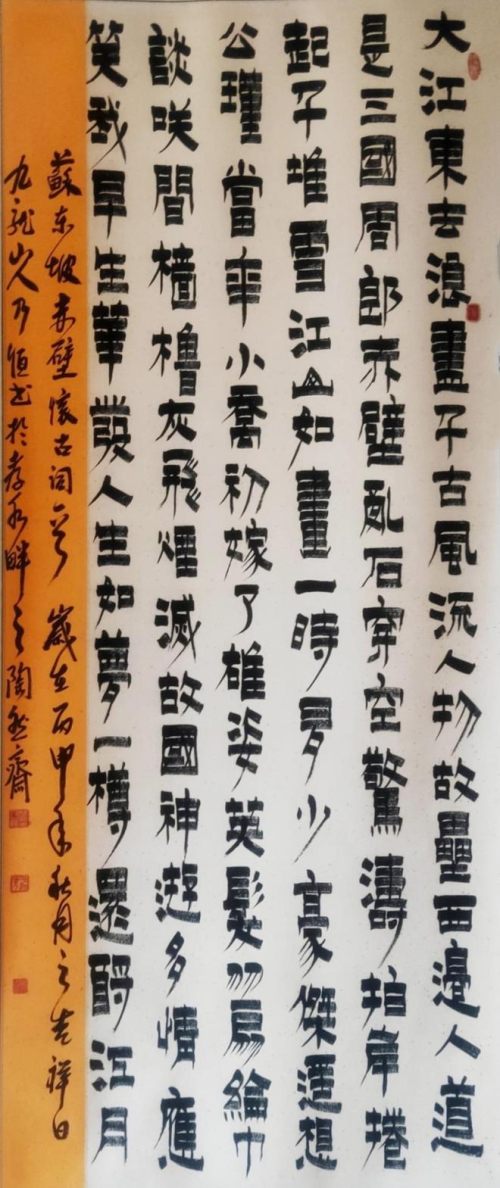 大江東去浪盡千古風流人物故壘西邊人道
是三國周郎赤壁亂石穿空驚濤拍岸捲
起千堆雪江山如畫一時多少豪傑遥想
公瑾當年小喬初嫁了雄姿英髮羽扇綸巾
談咲間檣櫓灰飛煙滅故國神遊多情應
笑我早生華發人生如夢一樽還酹江月
蘇东坡赤壁懷古词一首 歲在丙申年秋月之吉祥日
九龍山人乃恒书於孝水畔之陶然齋